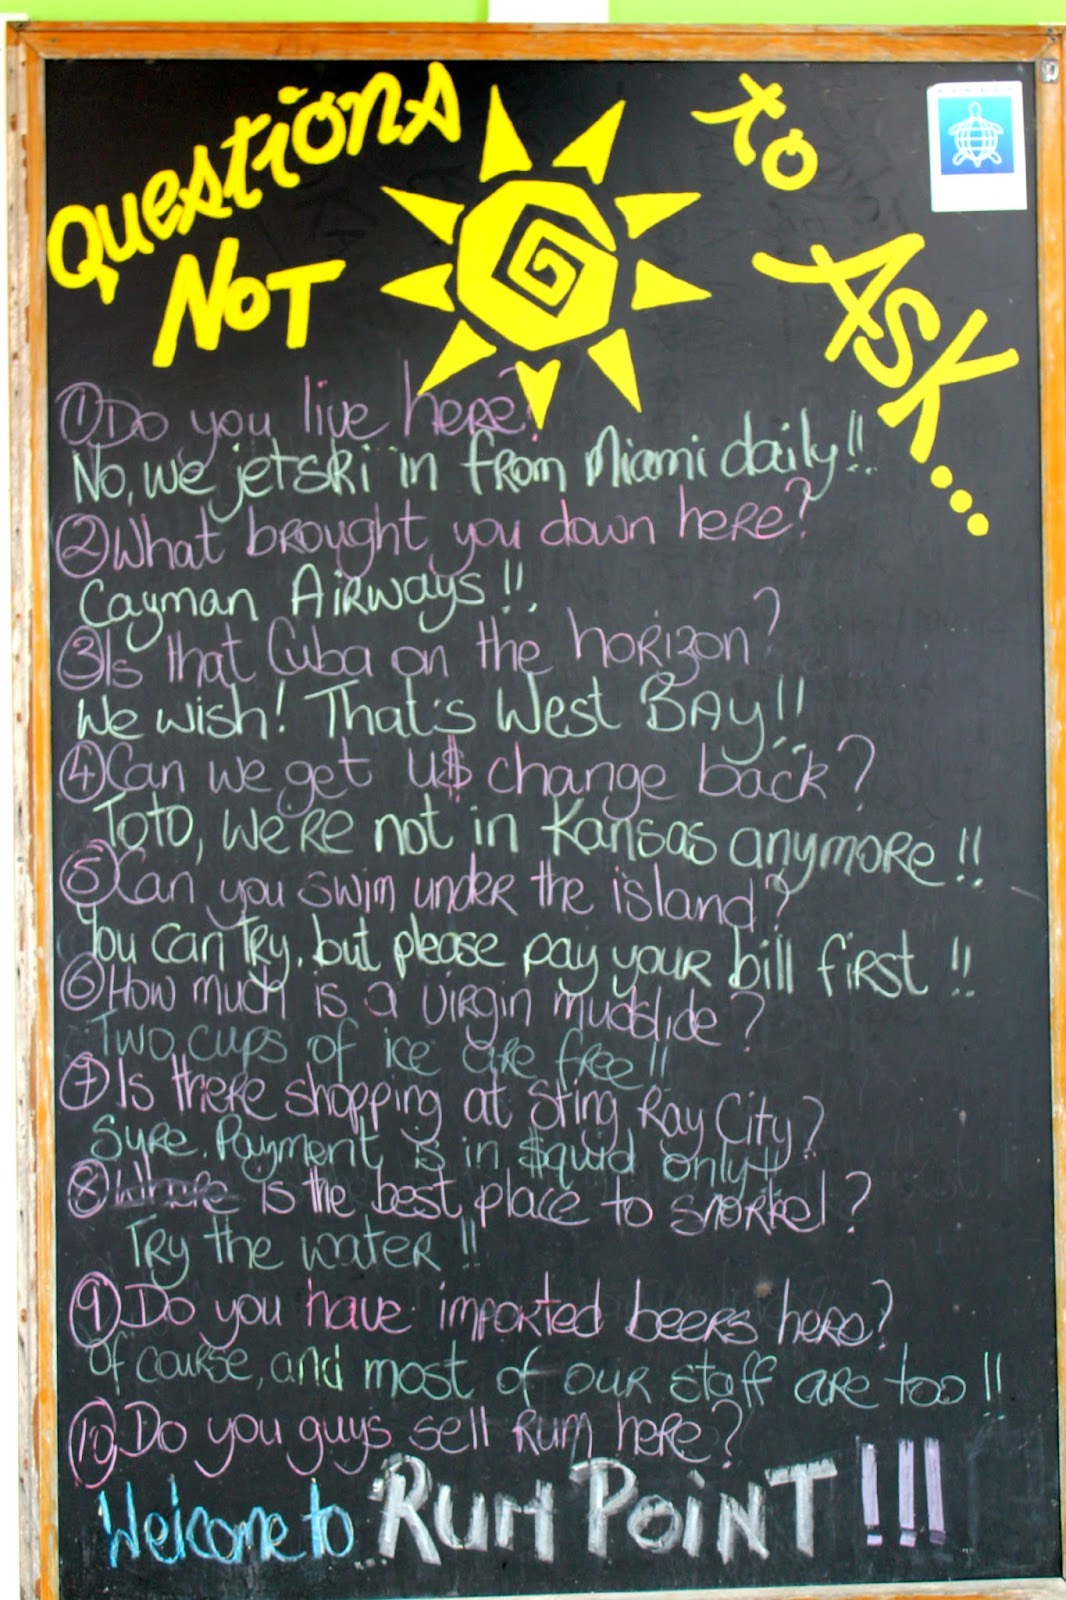 Questions
Not
to
Ask...
① Do you live here?
No, we jetski in from Miami daily!!
② What brought you down here?
Cayman Airways!!
③ Is that Cuba on the horizon?
We wish! That's West Bay!!
④ Can we get U$ change back?
Toto, we're not in Kansas anymore!!
⑤ Can you swim under the island?
You can try, but please pay your bill first!!
⑥ How much is a virgin mudslide?
Two cups of ice are free!!
⑦ Is there shopping at Sting Ray City?
Sure. Payment is in $quid only!!
⑧ Where is the best place to snorkel?
Try the water!!
⑨ Do you have imported beers here?
Of course, and most of our staff are too!!
⑩ Do you guys sell rum here?
Welcome to... RUM POINT!!!